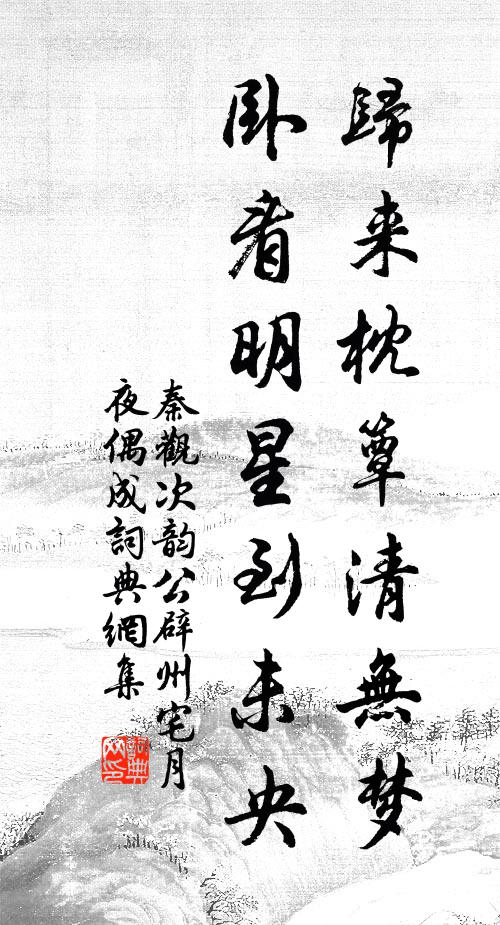 歸来枕簟清無梦
卧看明星到未央
秦觀次韵公辟州宅月
夜偶成詞典網集
詞典